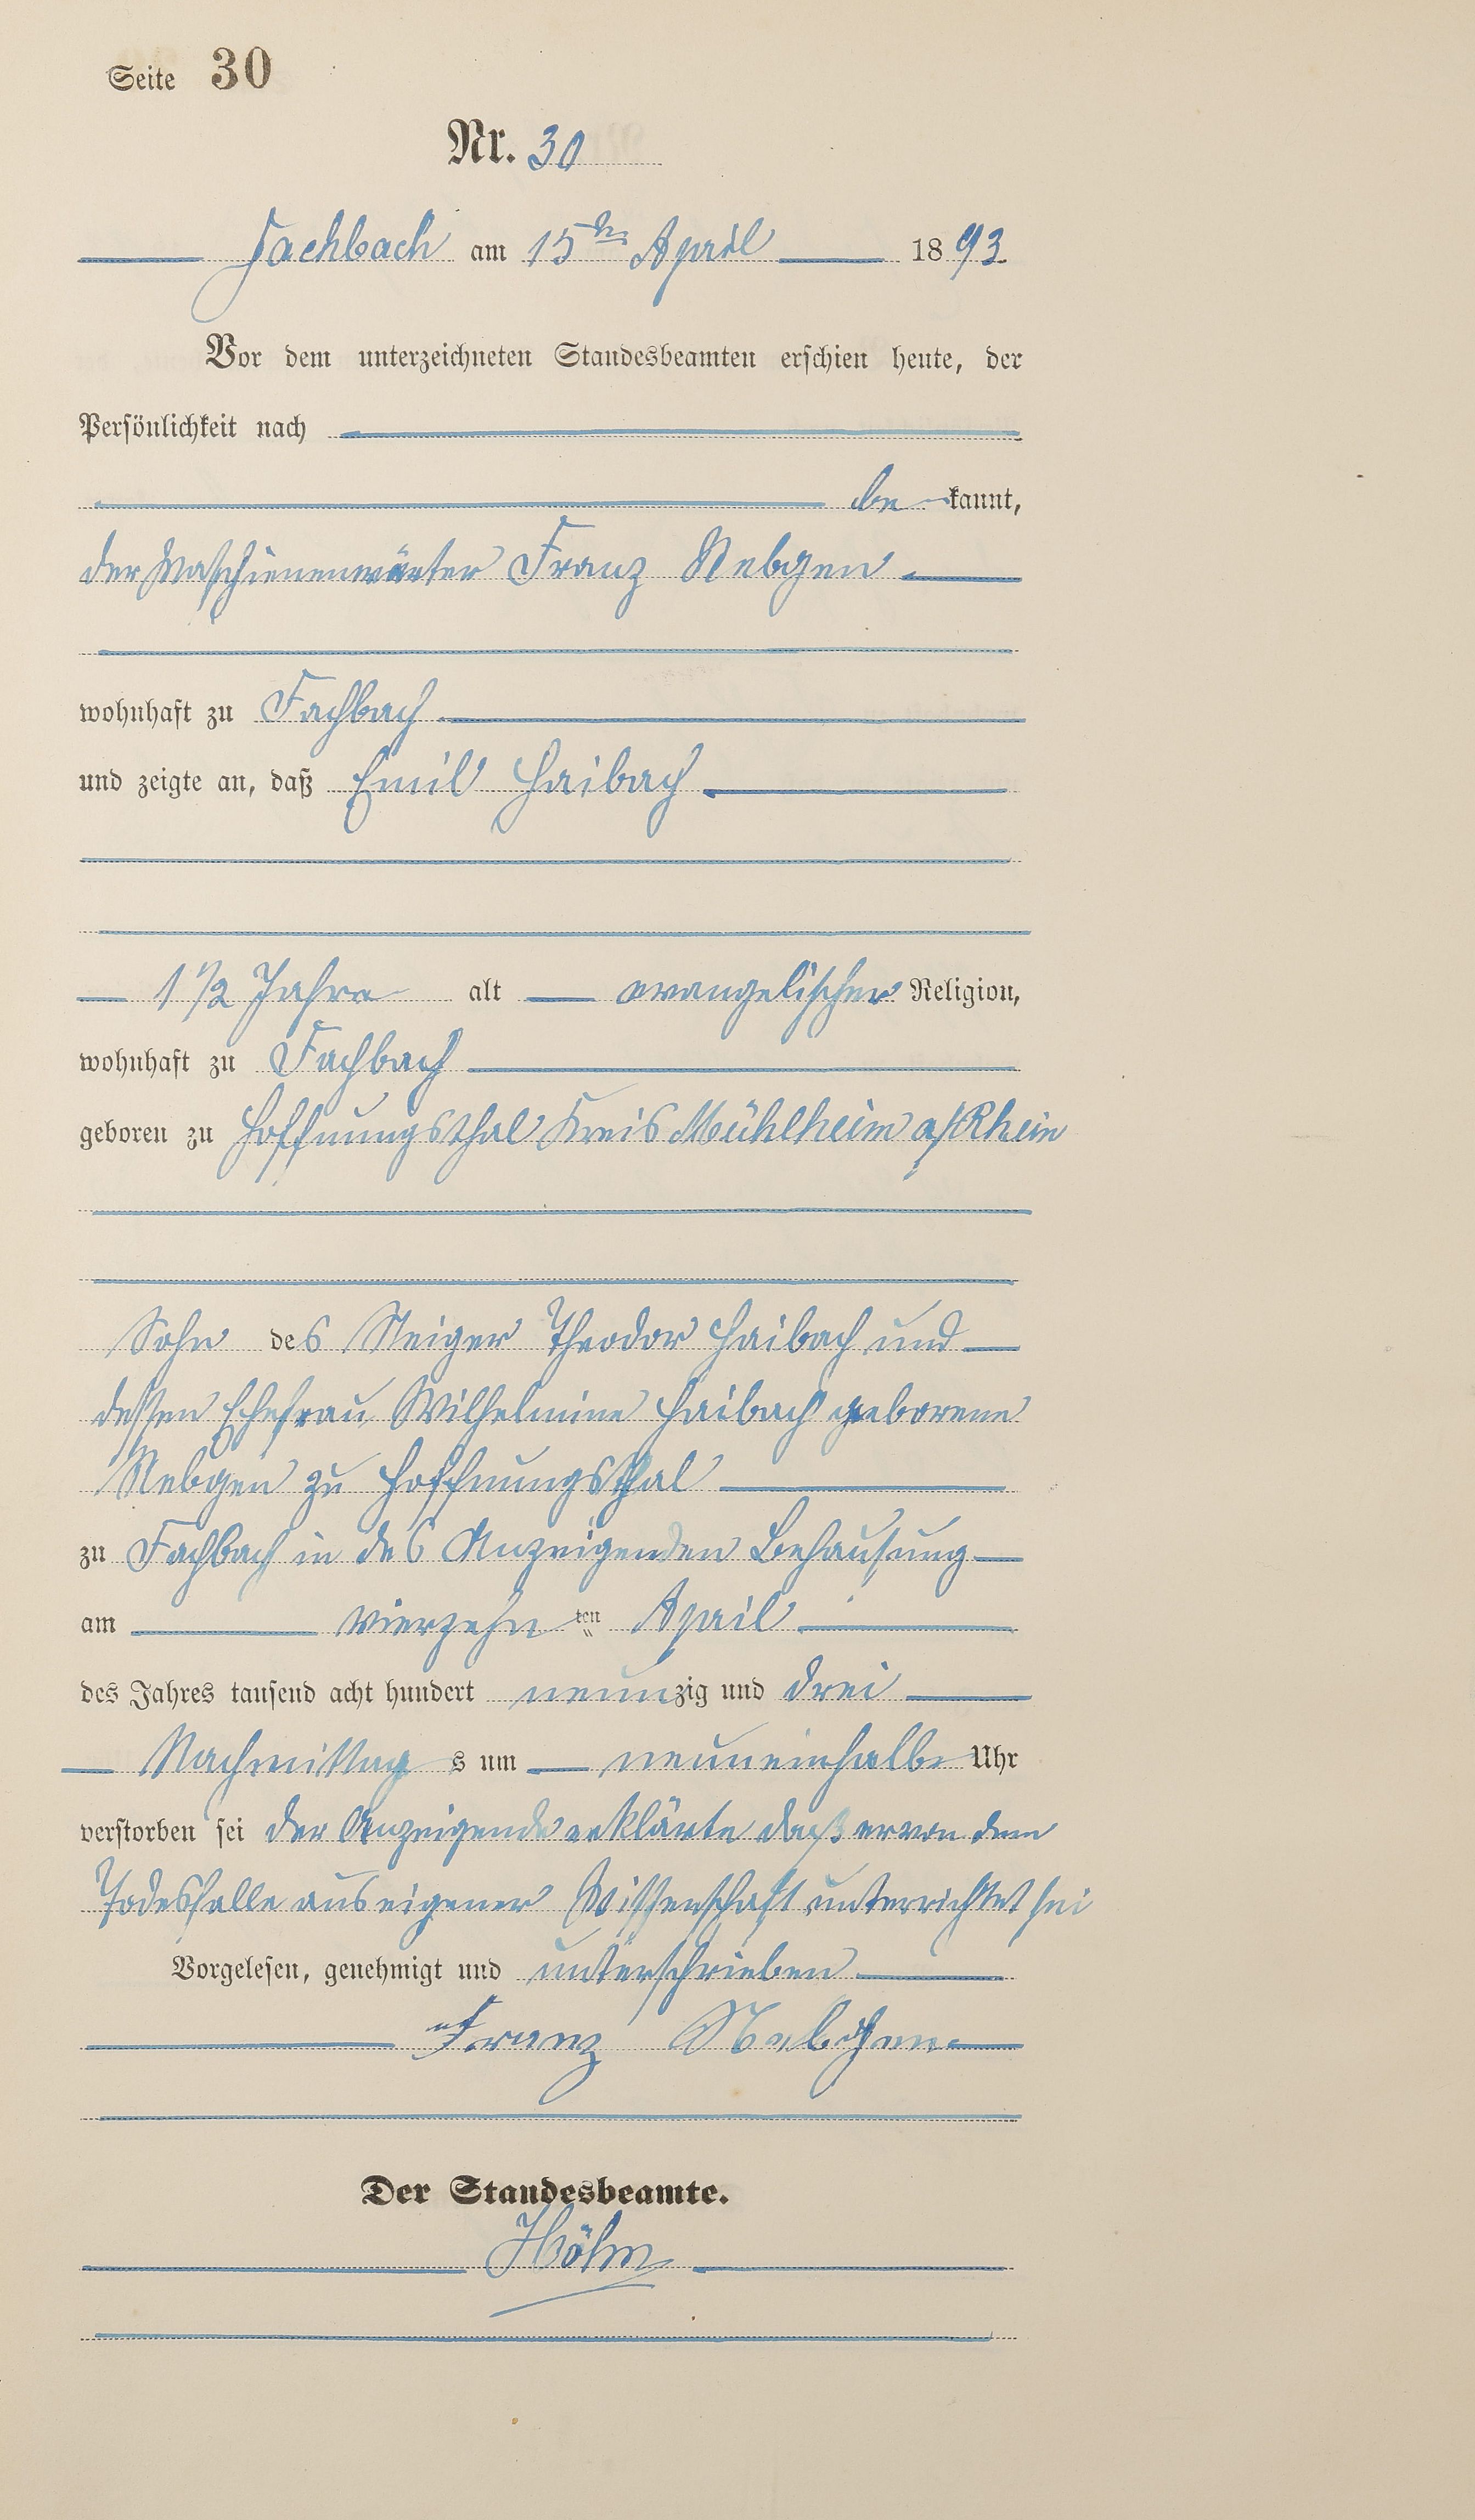 Seite 30
Nr. 30
Fachbach am 15ten April 1893
Vor dem unterzeichneten Standesbeamten erschien heute, der
Persönlichkeit nach
be kannt,
der Maschienenwärter Franz Nebgen
wohnhaft zu Fachbach
und zeigte an, daß Emil Haibach
1 1/2 Jahre alt evangelischer Religion,
wohnhaft zu Fachbach
geboren zu Hoffnungsthal Kreis Mühlheim a/Rhein
Sohn des Steiger Theodor Haibach und
dessen Ehefrau Wilhelmine Haibach geborene
Nebgen zu Hoffnungsthal
zu Fachbach in des Anzeigenden Behausung
am vierzehn ten April
des Jahres tausend acht hundert neunzig und drei
Nachmittag s um neuneinhalb Uhr
verstorben sei der Anzeigende erklärte daß er von dem
Todesfalle aus eigener Wissenschaft unterrichtet sei
Vorgelesen, genehmigt und unterschrieben
Franz Nebgen
Der Standesbeamte.